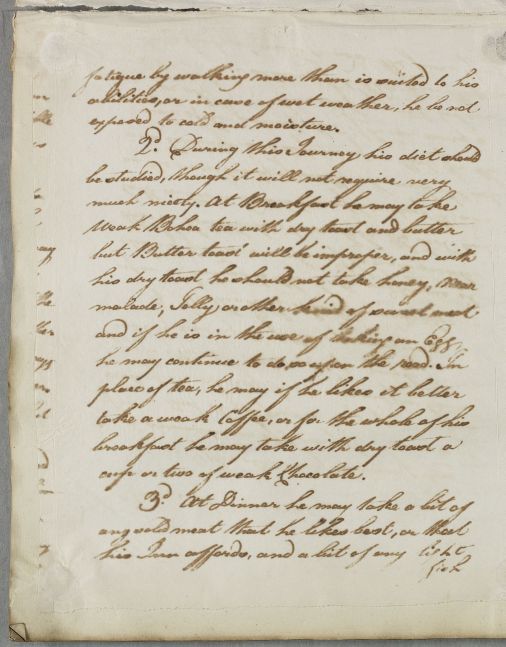 fatigue by walking more than is suited to his
abilities, or in case of wet weather, he be not
exposed to cold and moisture.
2d. During this Journey his diet should
be studied, though it will not require very
much nicety. At Breakfast he may take
Weak Bohea tea with dry toast and butter
but Butter toast will be improper, and with
his dry toast he should not take honey, Mar
malade, Jelly or other kind of sweet meat
and if he is in the use of taking an Egg,
he may continue to do so upon the road. In
place of tea, he may if he likes it better
take a weak Coffee, or for the whole of his
breakfast he may take with dry toast a
cup or two of weak Chocolate.
3d. At Dinner he may take a bit of
any solid meat that he likes best, or that
his Inn affords, and a bit of any light